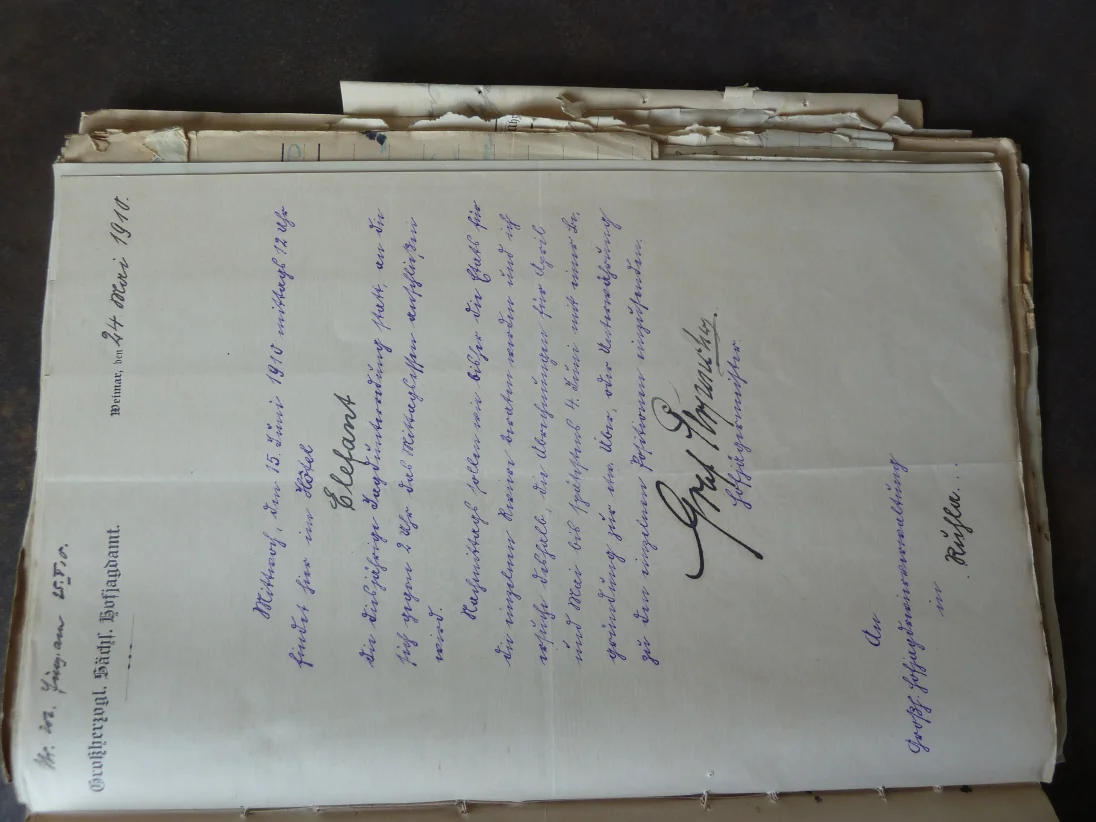 Nr. 202. Eing. am 25.V.10.
Großherzogl. Sächs. Hofjagdamt.
Weimar, den 24 Mai 1910.
Mittwoch, den 15. Juni 1910 mittags 12 Uhr
findet hier im Hôtel
Elefant
die diesjährige Jagdunterredung statt, an die
sich gegen 2 Uhr das Mittagessen anschließen
wird.
Nachmittags sollen wie bisher die Etats für
die einzelnen Reviere beraten werden und ich
ersuche deshalb, die Berechnungen für April
und Mai bis spätestens 4. Juni mit einer Be,
gründung zur ein Über, oder Unterwährung
zu den einzelnen Positionen einzusenden.
Graf
Hofjägermeister.
An
Großh. Hofjagdrevierverwaltung
in
Ruhla.